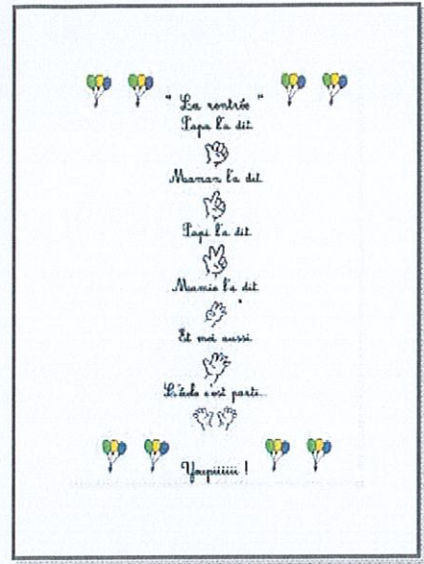 " La rentrée "
Papa l'a dit
Maman l'a dit
Papi l'a dit
Mamie l'a dit
Et moi aussi
L'école c'est parti...
Youpiiiiii !